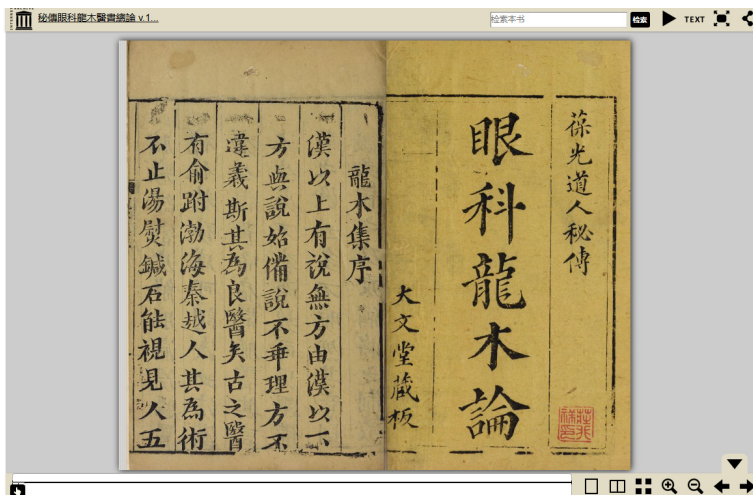 秘傳眼科龍木醫書總論 v.1...
检索本书
检索
TEXT
葆光道人秘傳
眼科龍木論
大文堂藏板
龍木集序
漢以上有說無方由漢以下
方與說始備說不乖理方不
違義斯其為良醫矣古之醫
有俞跗渤海秦越人其為術
不止湯熨鍼石能視見人五